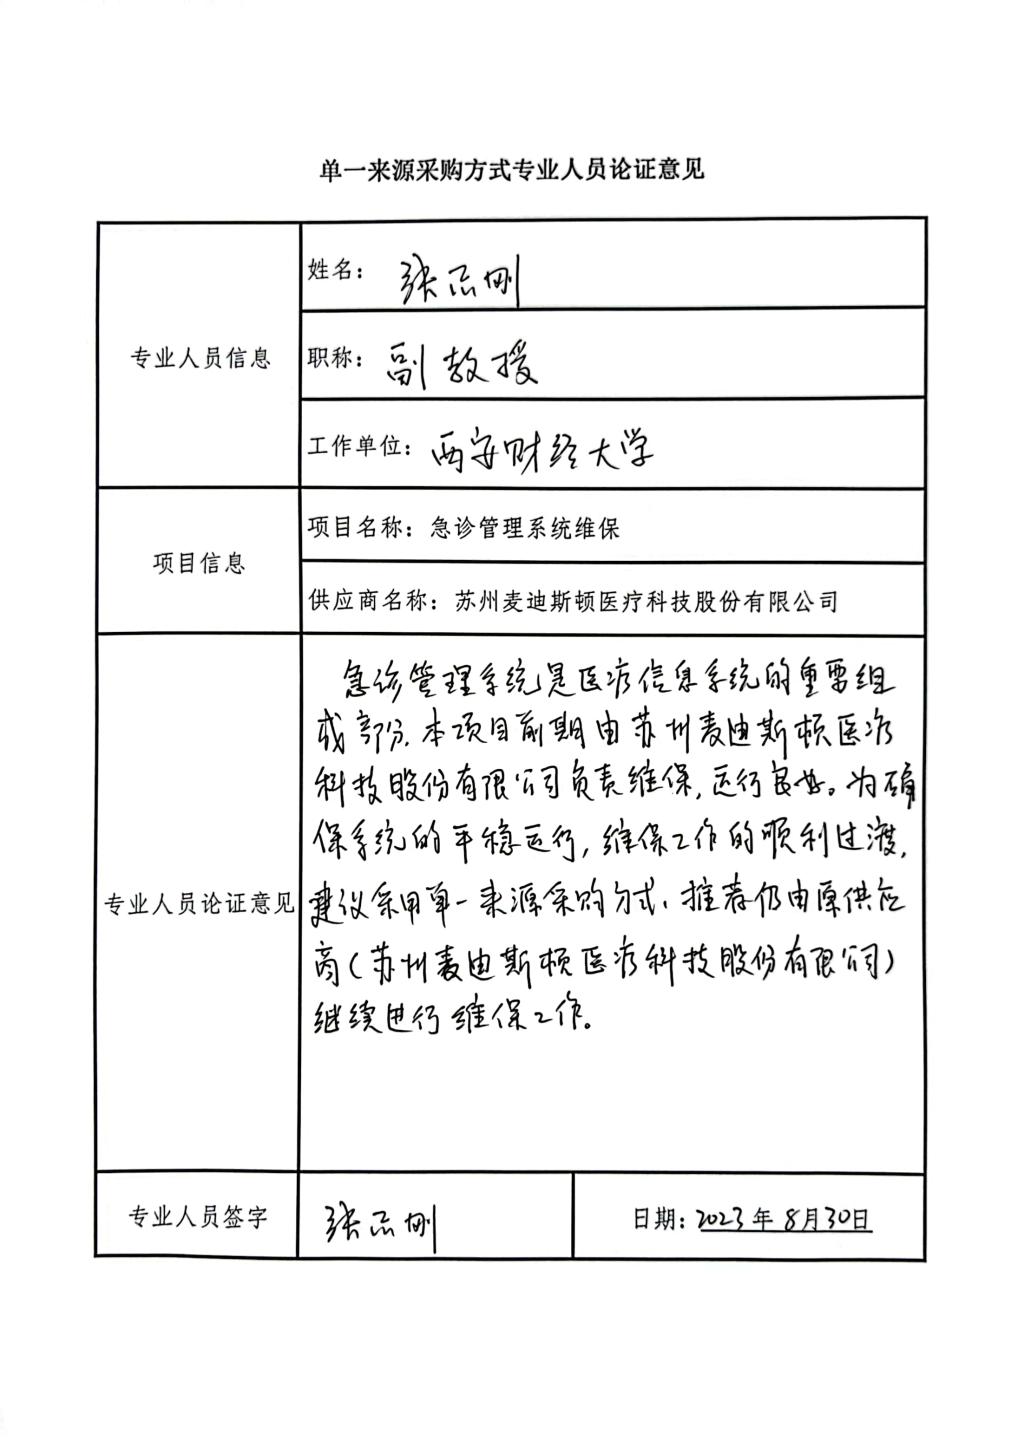 单一来源采购方式专业人员论证意见
专业人员信息
姓名：张志刚
职称：副教授
工作单位：西安财经大学
项目信息
项目名称：急诊管理系统维保
供应商名称：苏州麦迪斯顿医疗科技股份有限公司
专业人员论证意见
急诊管理系统是医疗信息系统的重要组
成部份，本项目前期由苏州麦迪斯顿医疗
科技股份有限公司负责维保，运行良好。为确
保系统的平稳运行，维保工作的顺利过渡，
建议采用单一来源采购方式，推荐仍由原供应
商（苏州麦迪斯顿医疗科技股份有限公司）
继续进行维保工作。
专业人员签字
张志刚
日期：2023年8月30日